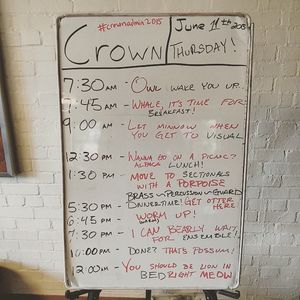 #crownadmin2015
June 11th
Crown
Thursday!
7:30 AM - Owl wake you up...
7:45 AM - Whale, it's time for
breakfast!
9:00 AM - Let minnow when
you get to visual
12:30 PM - Wanna go on a picnic?
Alpaca lunch!
1:30 PM - Move to sectionals
with a porpoise
Brass - Percussion - Guard
5:30 PM - Dinnertime! Get otter
here
6:45 PM - Worm up!
7:30 PM - I can bearly wait,
for ensemble!
11:00 PM - Done? That's possum!
12:00 AM - You should be lion in
bed right meow